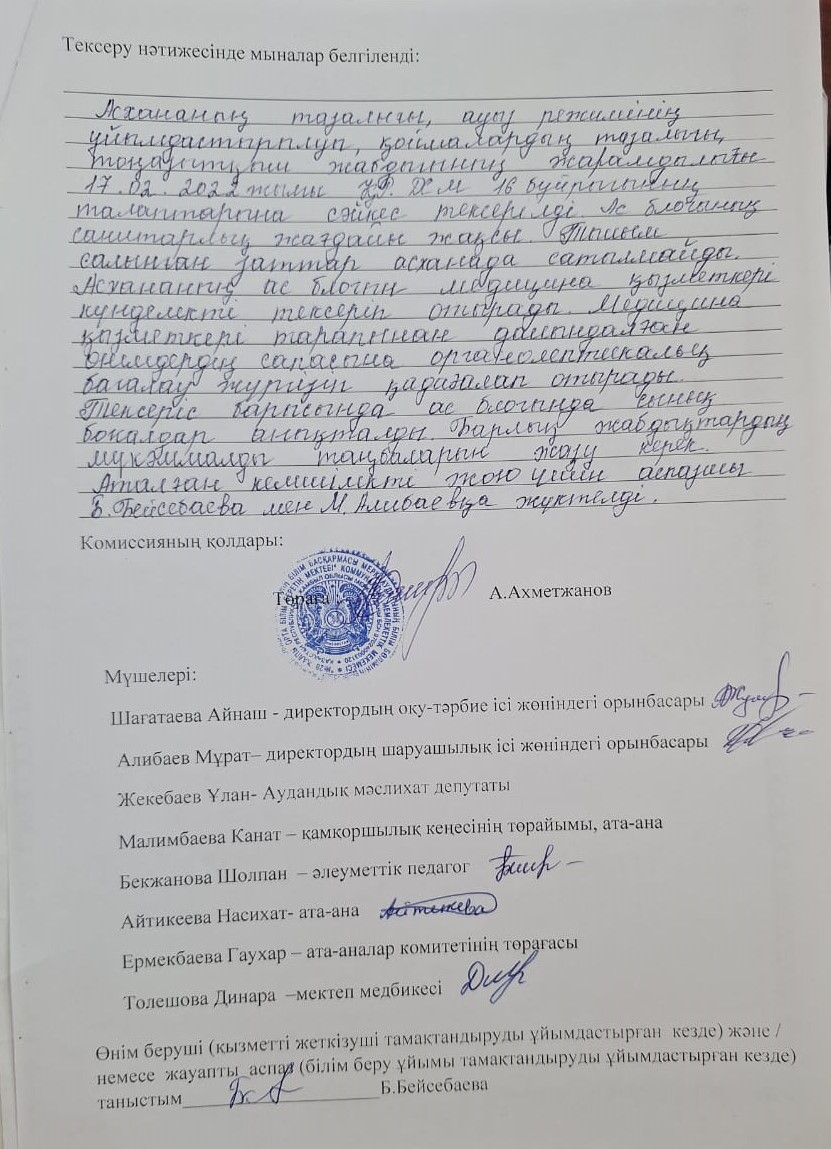 Тексеру нәтижесінде мыналар белгіленді:
Асхананың тазалығы, ауыз режимінің
ұйымдастырылуы, қоймалардың тазалығы,
тоңазытқыш жабдығының жарамдылығы
17.02.2022 жылғы ҚР ДСМ 16 бұйрығының
талаптарына сәйкес тексерілді. Ас блогының
санитарлық жағдайы жақсы. Тыйым
салынған заттар асханада сатылмайды.
Асхананың ас блогын медицина қызметкері
күнделікті тексеріп отырады. Медицина
қызметкері тарапынан дайындалған
өнімдердің сапасына органолептикалық
бағалау жүргізіп қадағалап отырады.
Тексеріс барысында ас блогында сынық
бокалдар анықталды. Барлық жабдықтардың
таңбаларын жазу керек.
Аталған кемшілікті жою үшін аспазшы
Б.Бейсебаева мен М.Алибаевқа жүктелді.
Комиссияның қолдары:
Төраға А.Ахметжанов
Мүшелері:
Шағатаева Айнаш - директордың оқу-тәрбие ісі жөніндегі орынбасары
Алибаев Мұрат– директордың шаруашылық ісі жөніндегі орынбасары
Жекебаев Ұлан- Аудандық мәслихат депутаты
Малимбаева Канат – қамқоршылық кеңесінің төрайымы, ата-ана
Бекжанова Шолпан – әлеуметтік педагог
Айтикеева Насихат- ата-ана
Ермекбаева Гаухар – ата-аналар комитетінің төрағасы
Толешова Динара –мектеп медбикесі
Өнім беруші (қызметті жеткізуші тамақтандыруды ұйымдастырған кезде) және /
немесе жауапты аспаз (білім беру ұйымы тамақтандыруды ұйымдастырған кезде)
таныстым____________________Б.Бейсебаева